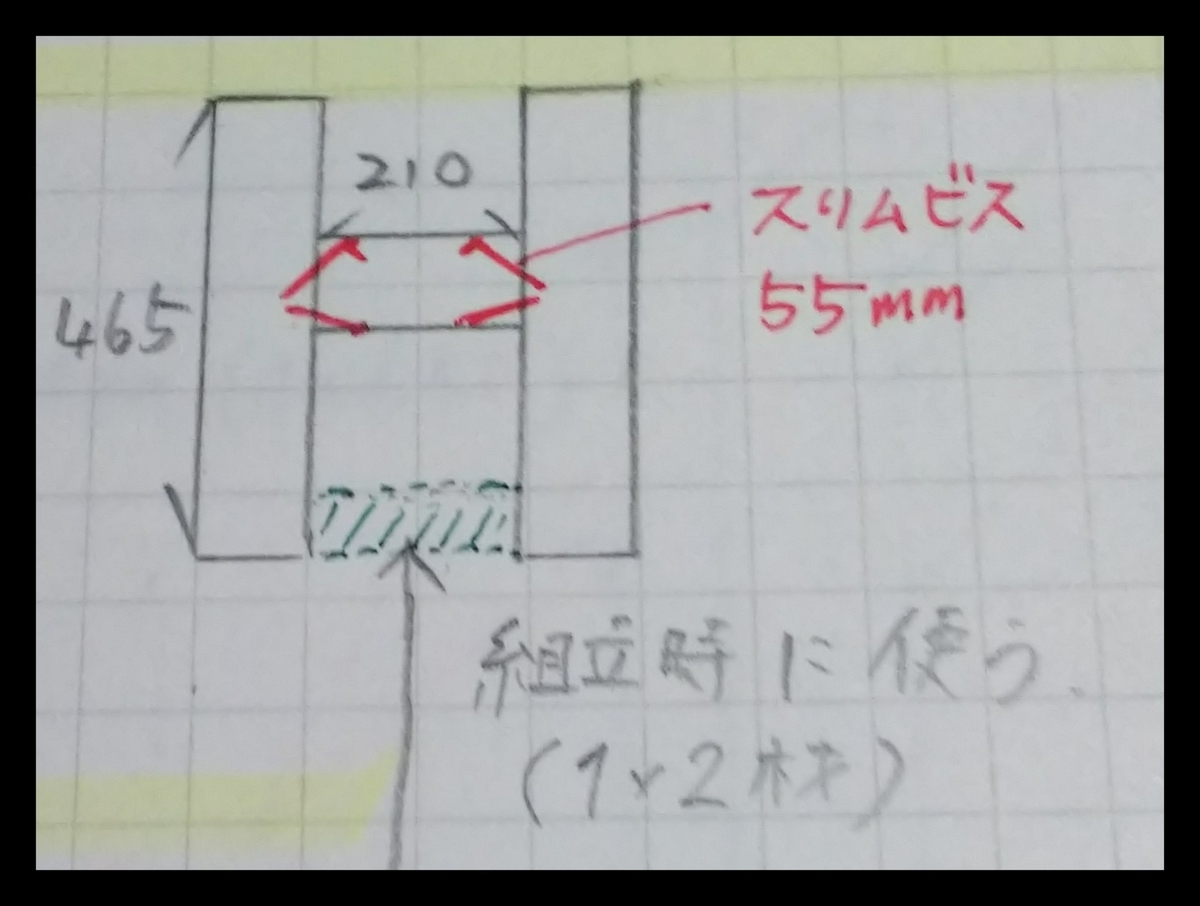 210
スリムビス
55mm
465
組立時に使う.
(1×2材)